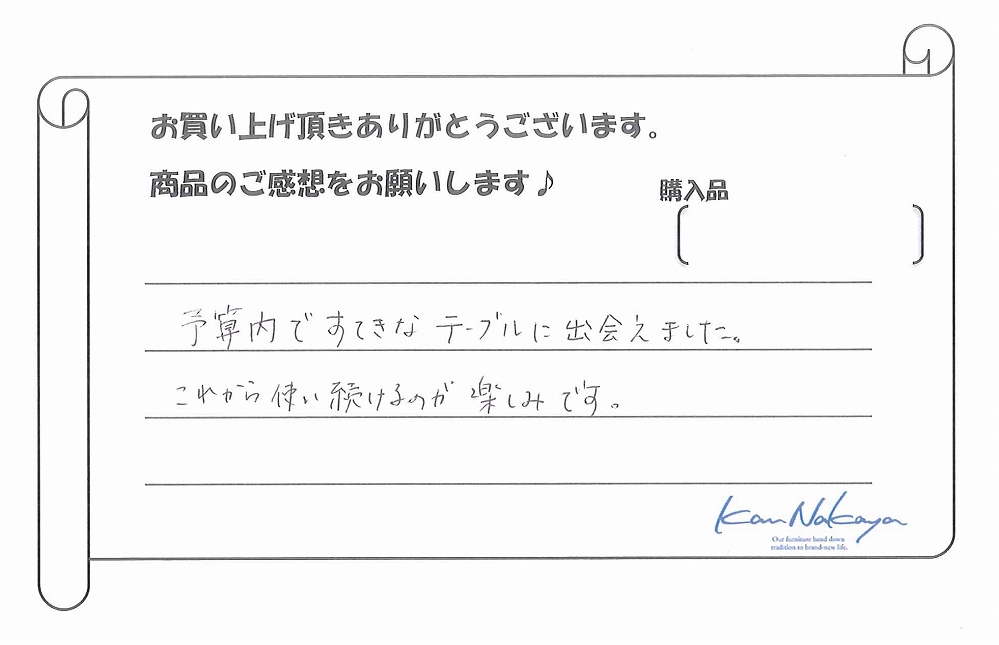 お買い上げ頂きありがとうございます。
商品のご感想をお願いします♪
購入品
予算内ですてきなテーブルに出会えました。
これから使い続けるのが楽しみです。
Kan Nakaya
Our furniture hand down
tradition to brand-new life.